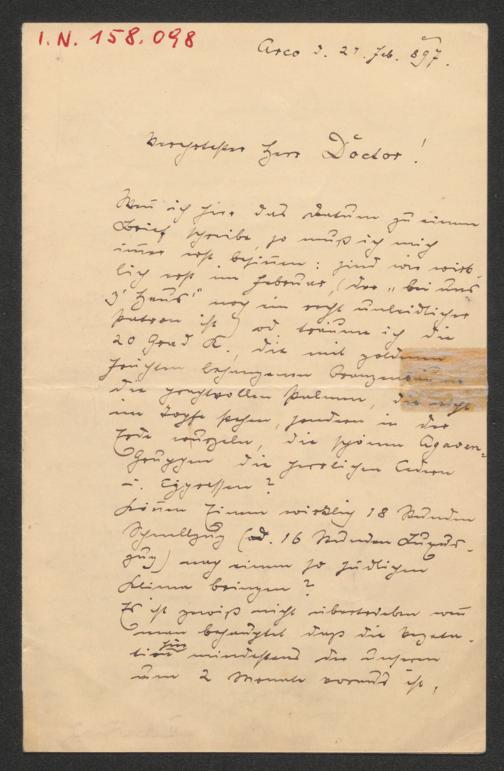 I.N. 158.098
Arco d. 27. Feb. 897.
Verehrtester Herr Doctor!
Wenn ich hier das Datum zu einem
Brief schreibe, so muß ich mich
immer erst besinnen: sind wir wirk-
lich erst im Februar, (der "bei uns
z' Haus" noch ein recht unleidlicher
Patron ist) od. träume ich die
20 Grad R., die mit goldenen
Früchten behangenen Orangenbäume
die prachtvollen Palmen, die nicht
im Topfe stehen, sondern in der
Erde wurzeln, die schönen Agaven-
Gruppen die herrlichen Cedern
u. Cypressen?
Können Einem wirklich 18 Stunden
Schnellzug (od. 16 Stunden Luxus-
zug) nach einem so südlichen
Klima bringen?
Es ist gewiß nicht übertrieben wenn
man behauptet daß die Vegeta-
tion hier mindestens der unseren
um 2 Monate voraus ist,